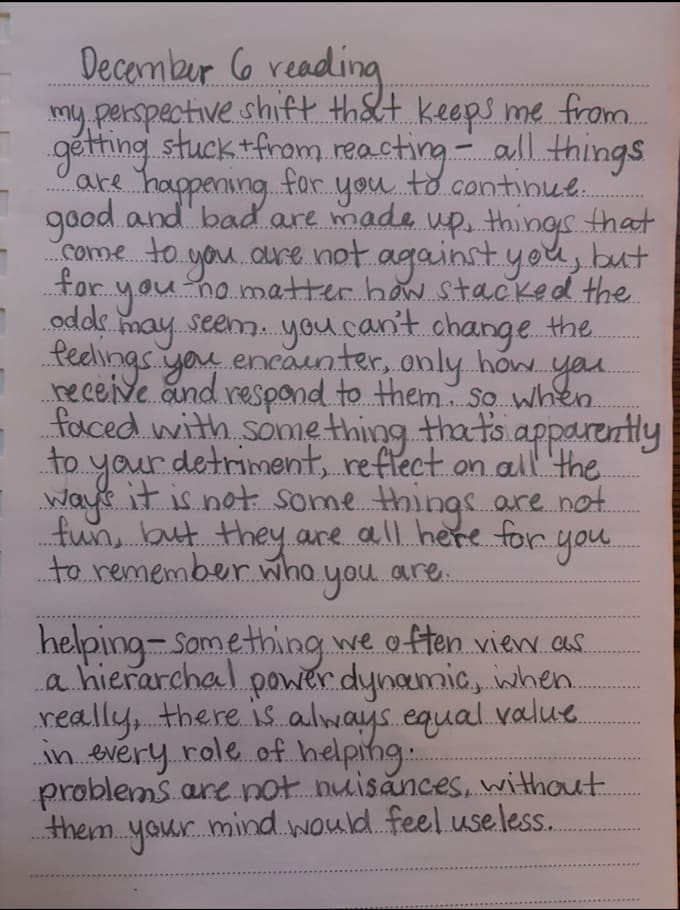 December 6 reading
my perspective shift that keeps me from
getting stuck + from reacting - all things
are happening for you to continue.
good and bad are made up, things that
come to you are not against you, but
for you - no matter how stacked the
odds may seem. you can't change the
feelings you encounter, only how you
receive and respond to them. so when
faced with something that's apparently
to your detriment, reflect on all the
ways it is not. some things are not
fun, but they are all here for you
to remember who you are.
helping - something we often view as
a hierarchal power dynamic, when
really, there is always equal value
in every role of helping.
problems are not nuisances, without
them your mind would feel useless.